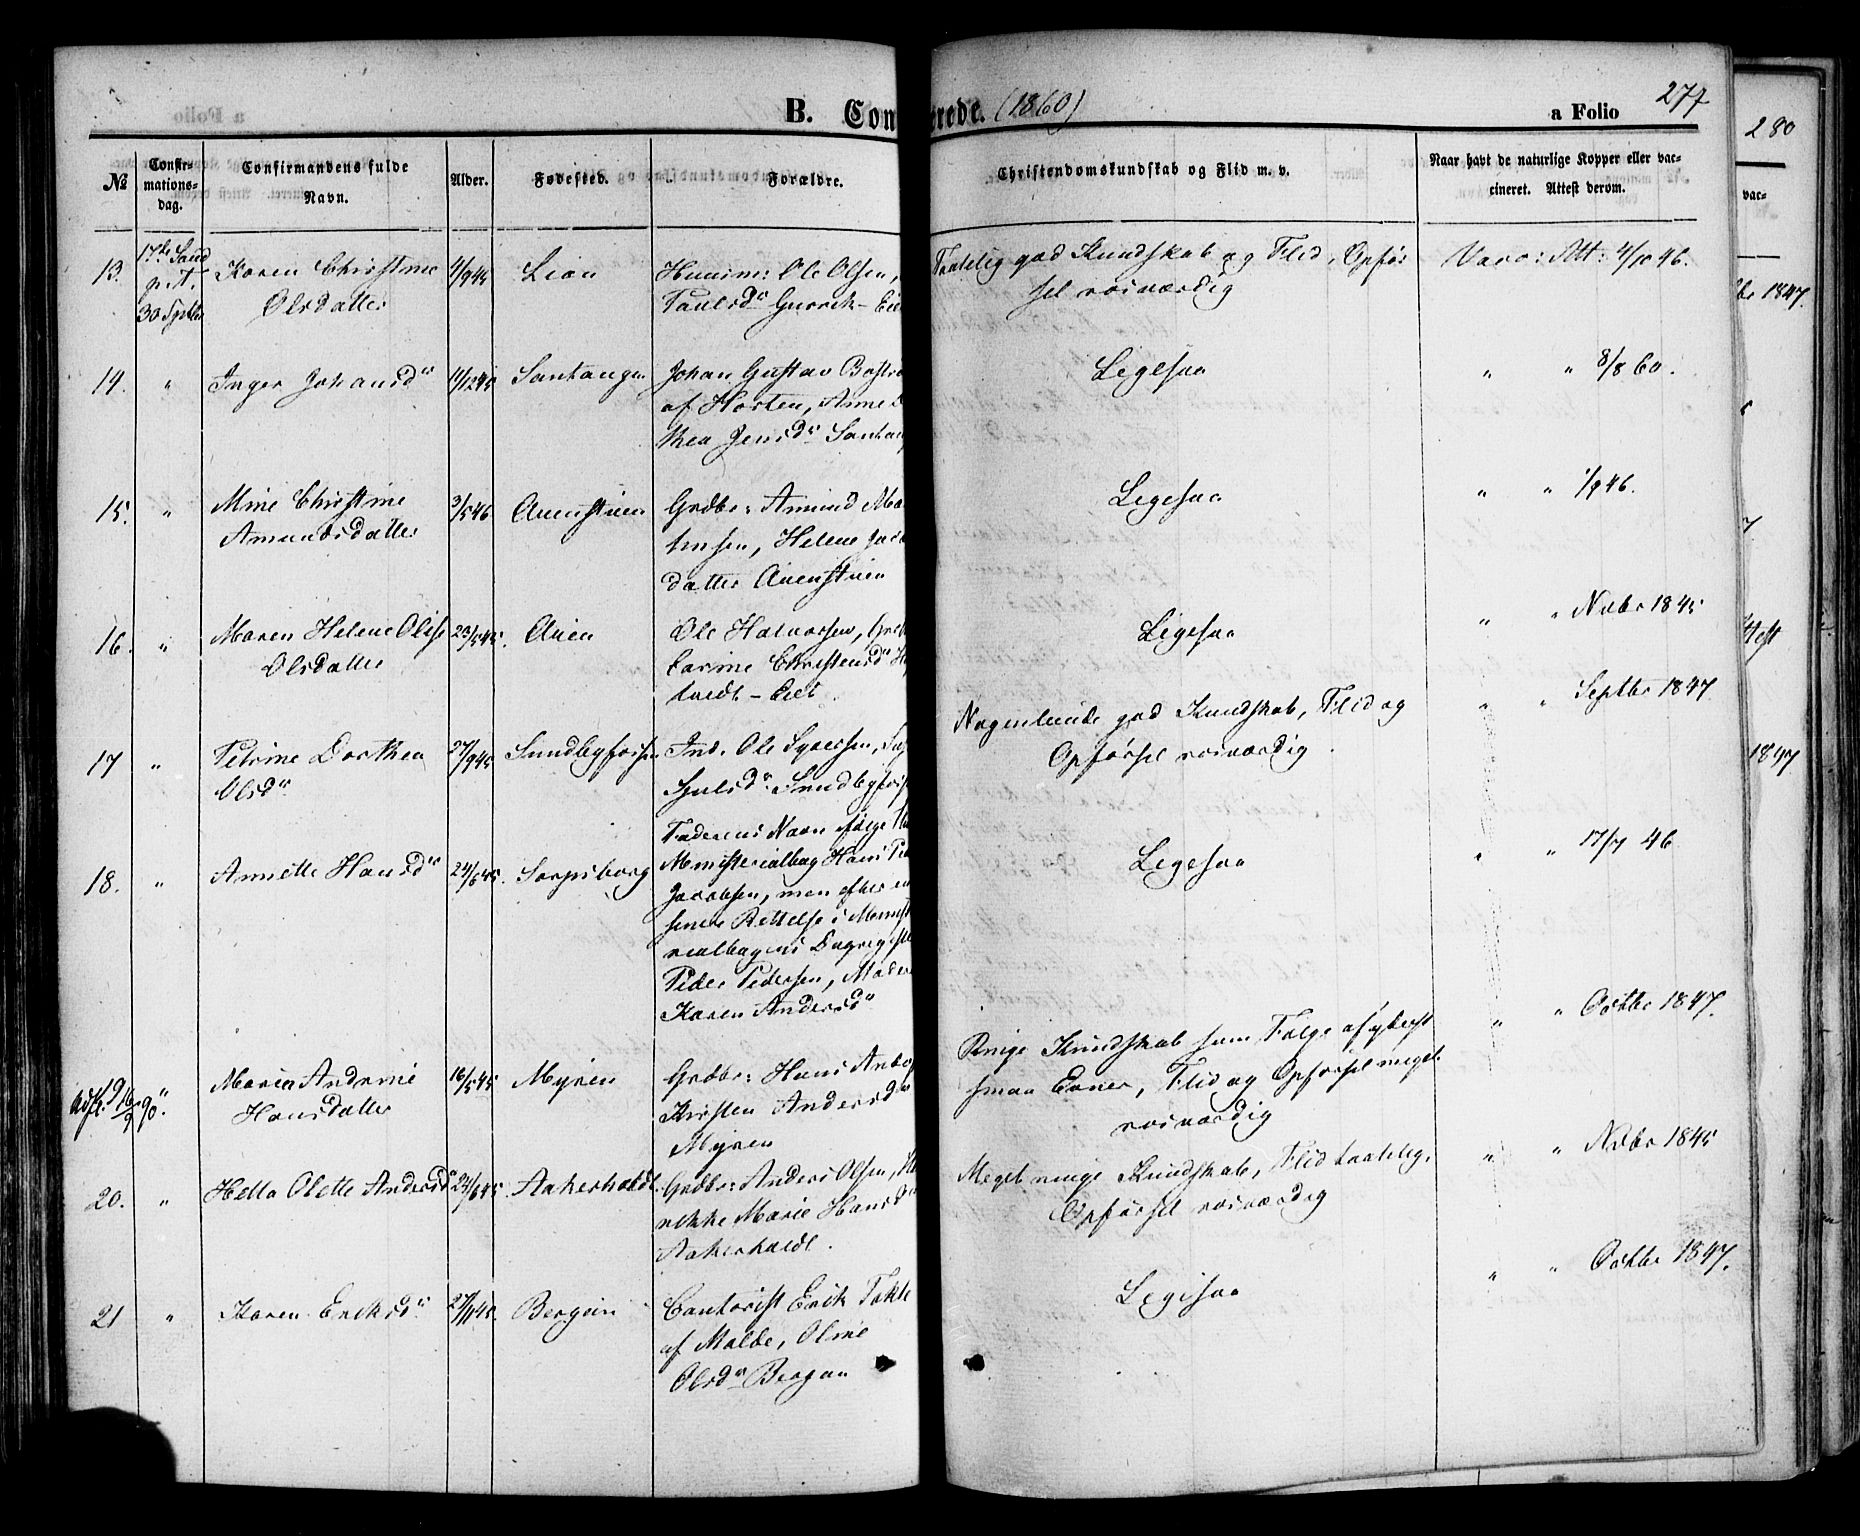 B. Con
erede. (1860)
a Folio 277
280
№
Confir-
mations-
dag.
Confirmandens fulde
Navn.
Alder.
Fødested.
Forældre.
Christendomskundskab og Flid m. v.
Naar havt de naturlige Kopper eller vac-
cineret. Attest derom.
vac-
13.
17de Sønd
p. T.
30 Septbr
Karen Christine
Olsdatter
4/9 45
Lian
Huusm: Ole Olsen,
Paulsdr
Taalelig god Kundskab og Flid, Opfør
sel rosværdig
Vacc: Att: 4/10 46.
14. "
Inger Johansdr
11/12 45
Santangen
Johan Gustav
af Horten, Anne D
thea Jensdr Santan
Ligesaa
" " 8/8 60.
15. "
Mine Christine
Amundsdatter
3/5 46
Auenstuen
Grdbr: Amund Mar
tinsen, Helene Jac
datter Auenstuen
Ligesaa
" " 1/9 46.
16. "
Maren Helene Olise
Olsdatter
23/5 45.
Auen
Ole Halvorsen,
Carine Christensdr
tvedt - Eiet
Ligesaa
" " Novbr 1845
17 "
Petrine Dorthea
Olsdr
27/9 45
Sundbyfossen
Ind. Ole Syversen,
Nogenlunde god Kundskab, Flid og
Opførsel rosværdig.
" " Septbr 1847
18. "
Annette Hansdr
24/6 45.
Sarpsborg
Faderens Navn ifølge
Ministerialbog Hans Pet
Jacobsen, men efter en
senere Rettelse i Minist
rialbogens Dagregister
Peder Pedersen, Moder
Karen Andersdr
Ligesaa
" " 17/7 46
19. "
Maria Andrine
Hansdatter
16/5 45
Myren
Grdbr: Hans Ander
Kirsten Andersdr
Myren
Ringe Kundskab som Følge af yderst
smaa Evner, Flid og Opførsel meget
rosværdig
" " Octbr 1847.
20. "
Hella Olette Andersdr
24/6 45.
Aakerholdt
Grdbr: Anders Olsen,
rikke Marie Hansdr
Aakerholdt.
Meget ringe Kundskab, Flid taalelig,
Opførsel rosværdig
" " Novbr 1845
21 "
Karen Eriksdr
27/11 45.
Bergan
Cantorist Erik
af Molde, Oline
Olsdr Bergan
Ligesaa
" " Octbr 1847.
1847.
1847